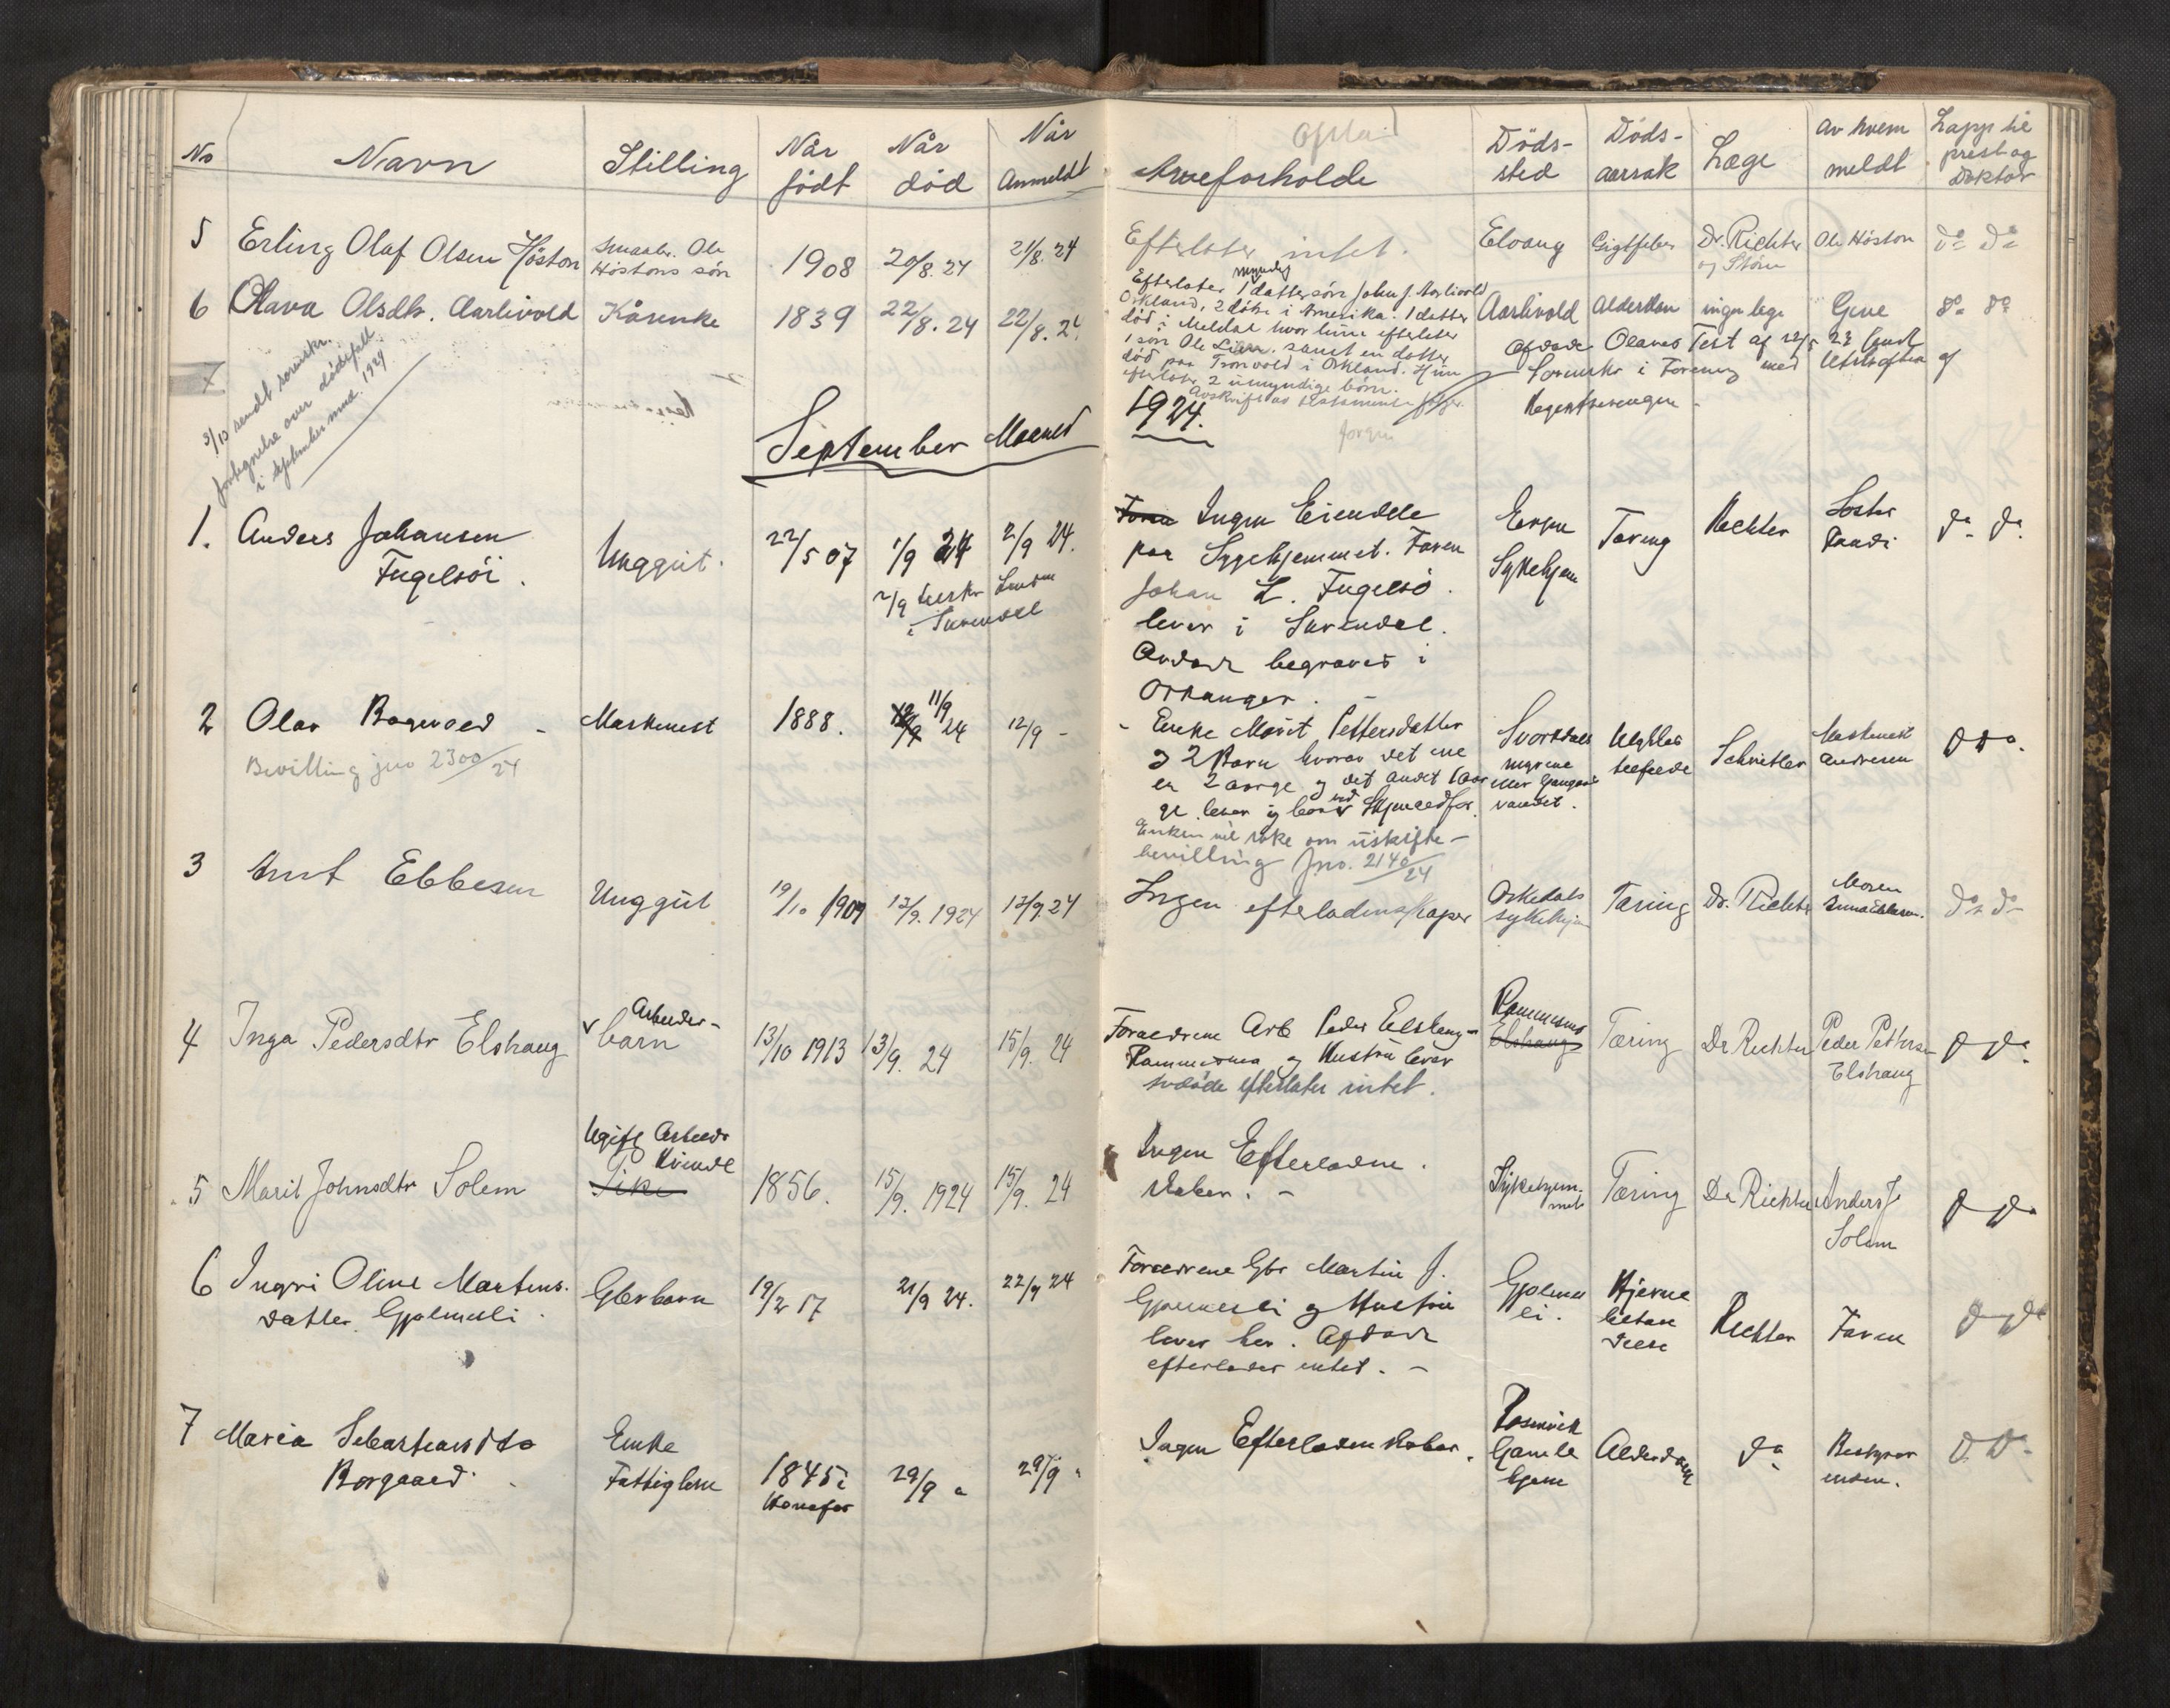 No Navn Stilling Når født Når død Når Anmeldt Arveforholde Døds-sted Døds-aarsak Læge Av hvem meldt Lapp til prest og Doktor
5 Erling Olaf Olsen Höston Smaabr. Ole Höstons søn 1908 20/8. 24 21/8. 24 Efterlater intet. Elvang Gigtfeber Dr. Richter og Størm Ole Höston do do
6 Olava Olsdtr. Aarlivold Kårenke 1839 22/8. 24 22/8. 24
Efterlater 1 myndig dattersøn John J. Aarlivold
Orkland, 2 døtre i Amerika. 1 datter
død i Meldal hvor hun efterlater
1 søn Ole samt en datter
død paa Tronvold i Orkland. Hun
efterlater 2 umyndige børn.
Avskrift av testamente følger.
Aarlivold Alderdom ingen lege do do
Avdøde Olavas Test af
Sorenskr i med
7
3/10 sendt sorenskr.
fortegnelse over dødsfall
i september mnd. 1924
September Maaned 1924.
1. Anders Johansen Fugelsöi. Unggut. 22/5 07 1/9 24 2/9 24.
2/9 i Surendal
Ingen Eiendele
paa Sygehjemmet. Faren
Johan L. Fugelsö.
lever i Surendal.
Avdøde begraves i
Orkanger. -
Sykehjem Tæring Richter do do.
2 Olav Bogevold - Maskinist 1888. 11/9 24 12/9 -
Bevilling jno 2300/24
- Enke Marit Pettersdatter
og 2 Barn hvorav det ene
er 2 aarge og det andet 1 aar
gl. lever og bor ved
Enken vil søke om uskifte-
bevilling Jno. 2140/24
Svorkdals myrene vandet. Ulykkes tilfelde Schnitler Maskinist Andresen do do.
3 Arnt Ebbesen Unggut 19/10 1909 12/9. 1924 12/9. 24 Ingen efterladenskaper Orkedals sykehjem Tæring Dr. Richter Moren do do
4 Inga Pedersdtr Elshaug Arbeider-barn 13/10 1913 13/9. 24 15/9. 24
Foraeldrene Arb Peder Elshaug
Rammesmo og Hustru lever
Avdøde efterlater intet.
Rammesmo Elshaug Tæring Dr Richter Peder Pettersen Elshaug do do
5 Marit Johnsdtr Solem Ugift Arbeids Kvinde Pike 1856. 15/9. 1924 15/9. 24
Ingen Efterladen-
skaber. -
Sykehjemmet Tæring Dr Richter Anders J Solem do do
6 Ingri Oline Martins.
datter Gjølmesli Gbrbarn 19/2 17 21/9 24. 22/9 24
Foraeldrene Gbr Martin J.
Gjølmesli og Hustru
lever her. Afdøde
efterlader intet. -
Gjølmesli. Hjerne betændelse Richter Faren do do
7 Maria Sebastiansdtr
Borgaard. Enke Fattiglem 1845 i 29/9 " 29/9 "
Ingen Efterladenskaber. Rosenvik Gamlehjem Alderdom do Bestyrerinden. do do